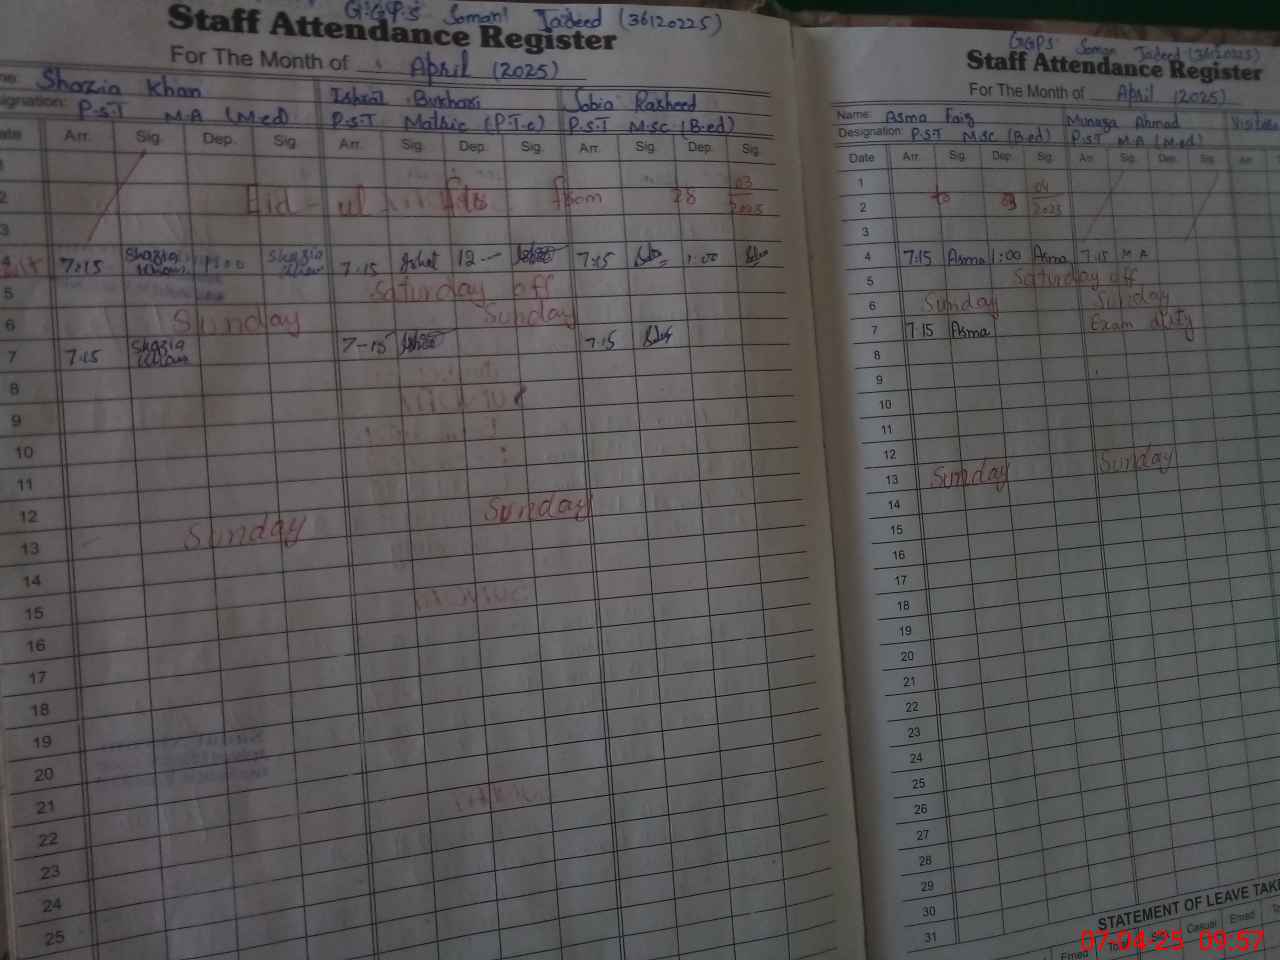 G.G.P.S Somani Jadeed (36120225)
Staff Attendance Register
For The Month of April (2025)
Shazia Khan Ishrat Bukhari Sobia Rasheed
Designation: P.S.T M.A (M.ed) P.S.T Matric (P.T.C) P.S.T M.sc (B.ed)
Date Arr. Sig. Dep. Sig. Arr. Sig. Dep. Sig. Arr. Sig. Dep. Sig.
1
2 Eid-ul fitr from 28 03 2025
3
4 7:15 Shazia Khan Shazia Khan 7:15 Ishrat 12 7:15 1:00
5 Saturday off
6 Sunday Sunday
7 7:15 Shazia Khan 7-15 7:15
8
9
10
11
12
13 Sunday Sunday
14
15
16
17
18
19
20
21
22
23
24
25
GGPS Soman Jadeed (36120225)
Staff Attendance Register
For The Month of April (2025)
Name: Asma Faiz Munaza Ahmad
Designation: P.S.T M.Sc (B.ed) P.S.T M.A (M.ed)
Date Arr. Sig. Dep. Sig. Arr. Sig. Dep. Sig. Arr.
1
2 to 03 04 2025
3
4 7:15 Asma 1:00 Asma 7:15 M A
5 Saturday off
6 Sunday Sunday
7 7:15 Asma Exam duty
8
9
10
11
12
13 Sunday Sunday
14
15
16
17
18
19
20
21
22
23
24
25
26
27
28
29
30
31
STATEMENT OF LEAVE TAKE
Sick Casual Earned
07-04-25 09:57